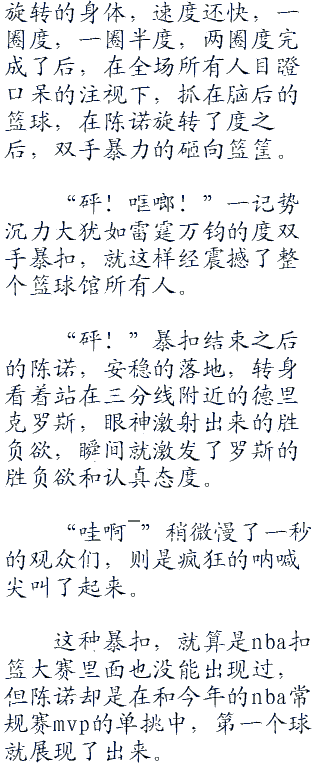 旋转的身体，速度还快，一
圈度，一圈半度，两圈度完
成了后，在全场所有人目瞪
口呆的注视下，抓在脑后的
篮球，在陈诺旋转了度之
后，双手暴力的砸向篮筐。
“砰！哐啷！”一记势
沉力大犹如雷霆万钧的度双
手暴扣，就这样经震撼了整
个篮球馆所有人。
“砰！”暴扣结束之后
的陈诺，安稳的落地，转身
看着站在三分线附近的德里
克罗斯，眼神激射出来的胜
负欲，瞬间就激发了罗斯的
胜负欲和认真态度。
“哇啊¯”稍微慢了一秒
的观众们，则是疯狂的呐喊
尖叫了起来。
这种暴扣，就算是nba扣
篮大赛里面也没能出现过，
但陈诺却是在和今年的nba常
规赛mvp的单挑中，第一个球
就展现了出来。